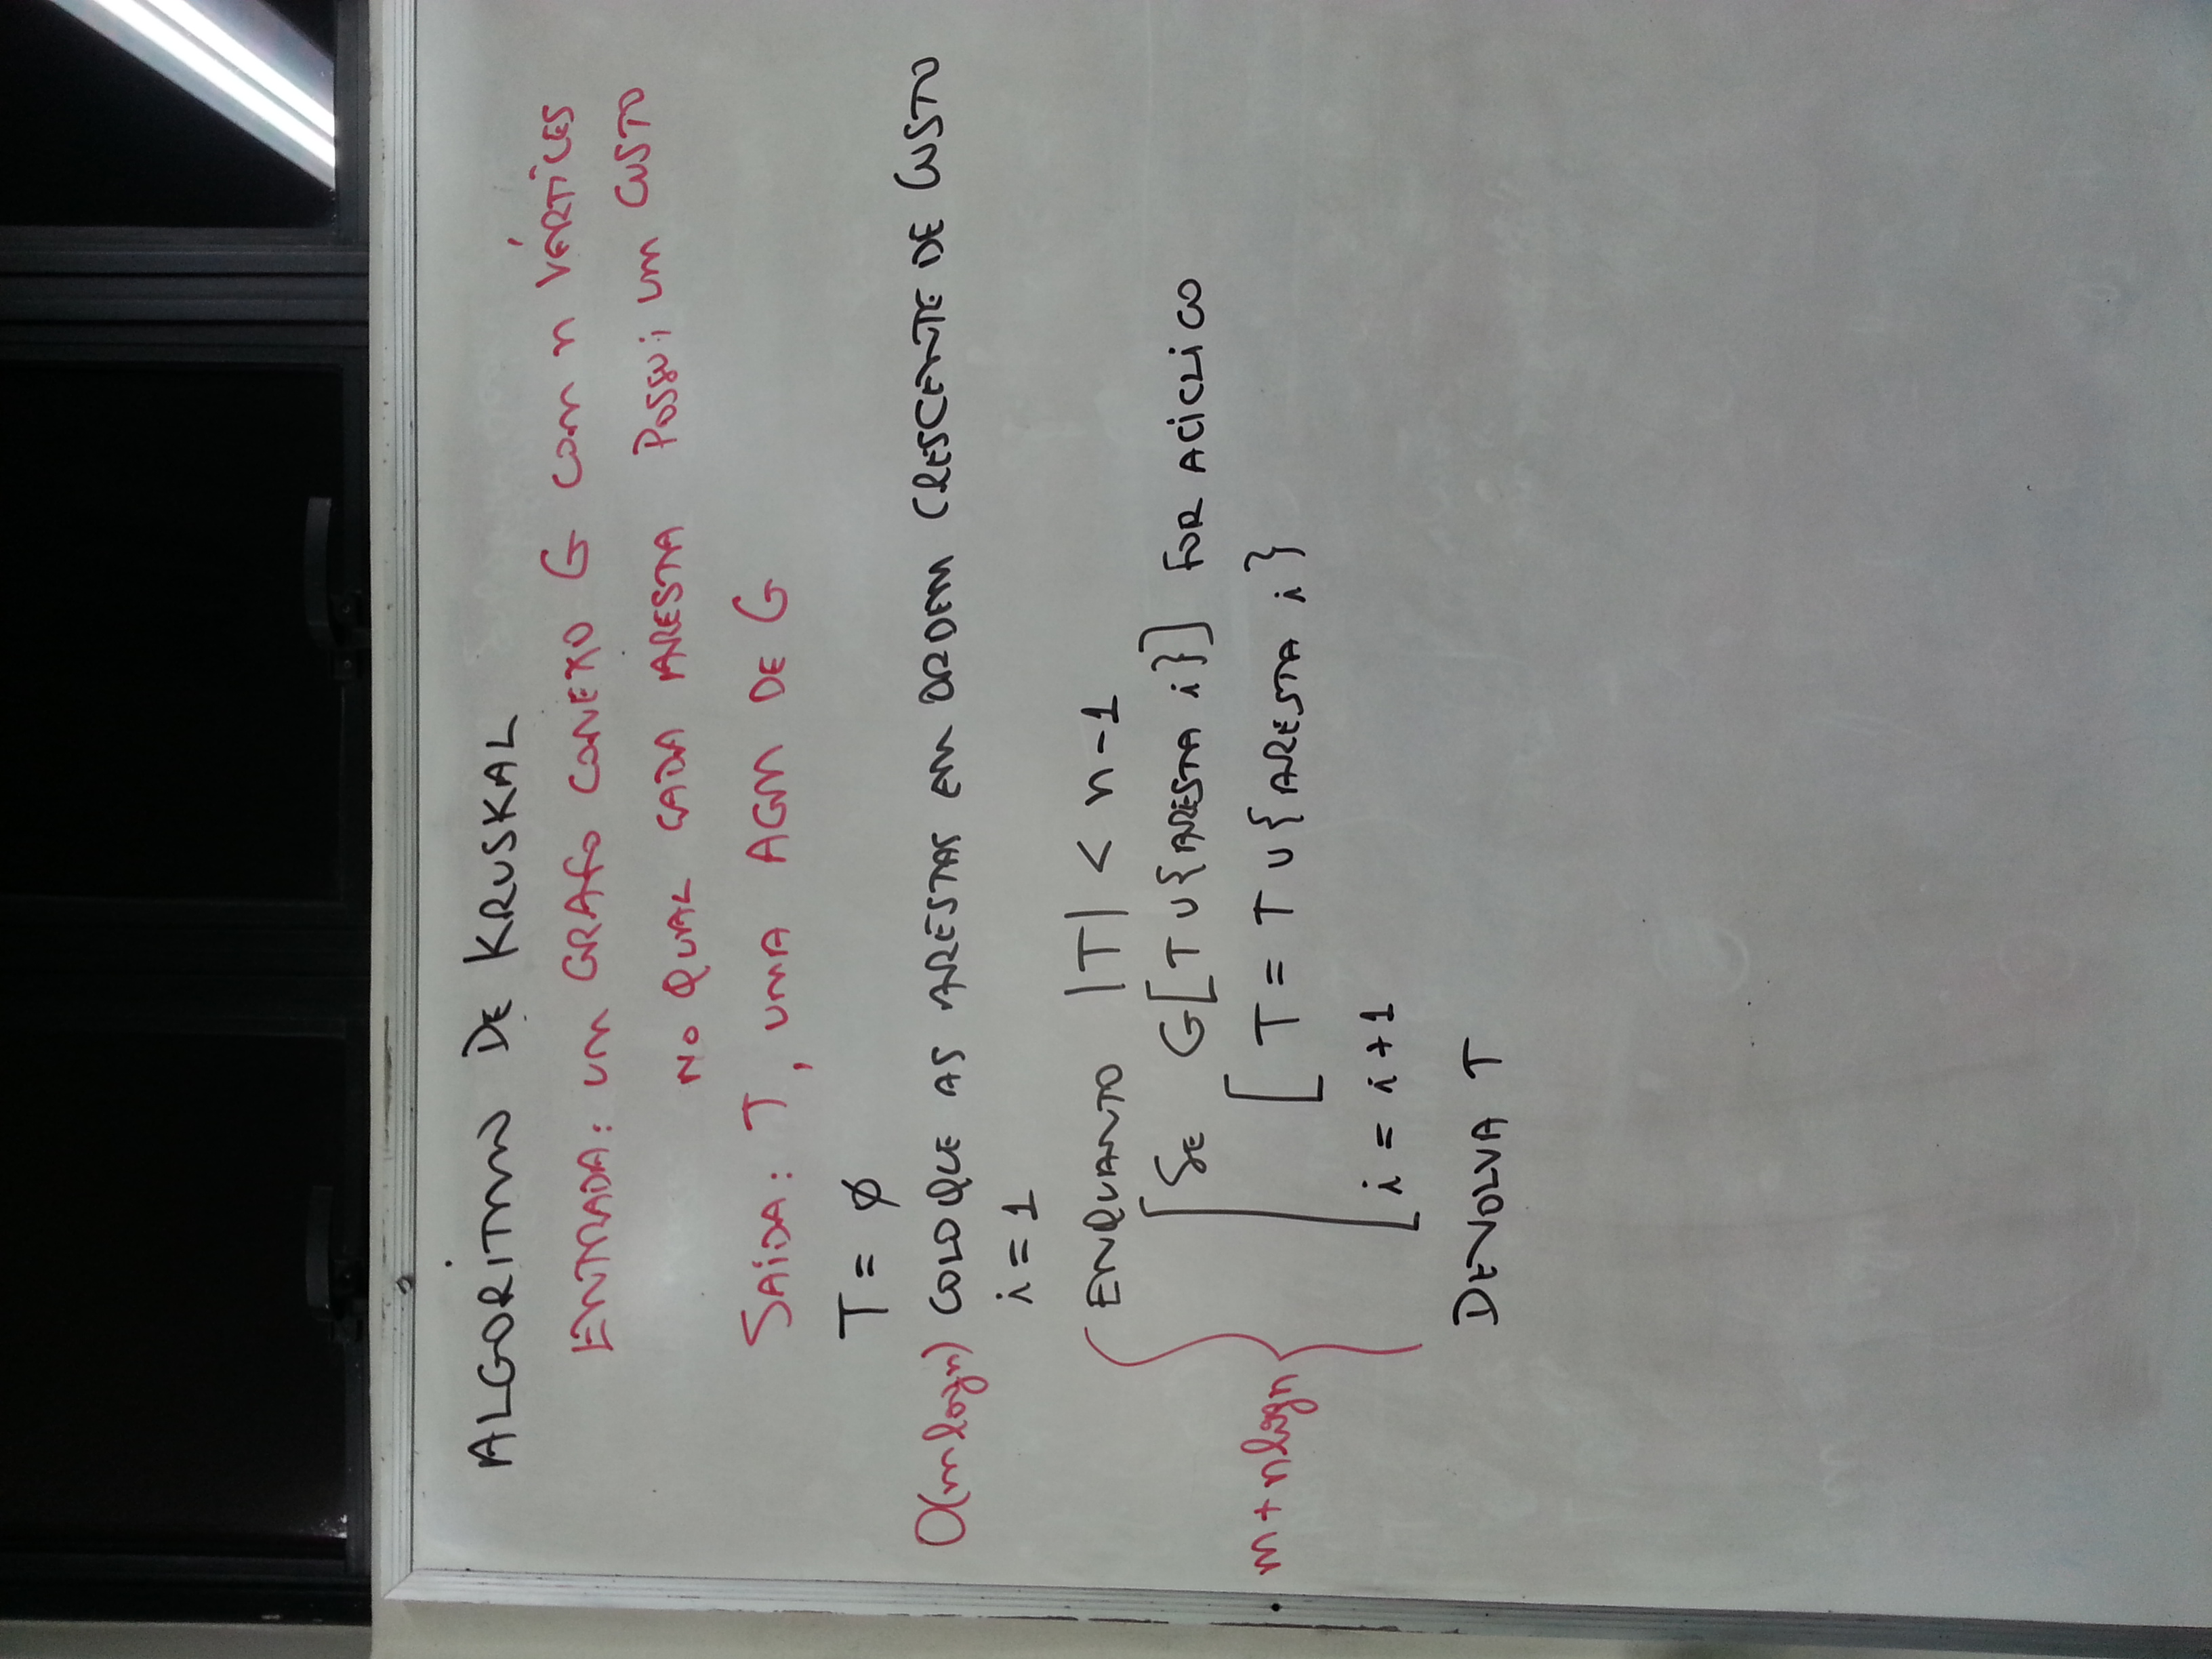 ALGORITMO DE KRUSKAL
ENTRADA: UM GRAFO CONEXO G COM n VÉRTICES
NO QUAL CADA ARESTA POSSUI UM CUSTO
SAÍDA: T, UMA AGM DE G
T = ∅
O(m log n) COLOQUE AS ARESTAS EM ORDEM CRESCENTE DE CUSTO
i = 1
ENQUANTO |T| < n-1
SE G[T ∪ {ARESTA i}] FOR ACICLICO
m + n log n [ T = T ∪ {ARESTA i}
i = i+1
DEVOLVA T